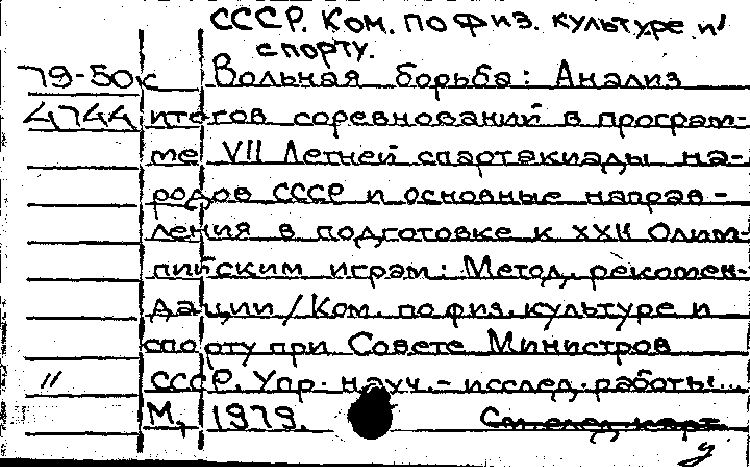 СССР. Ком. по физ. культуре и
спорту.
79-50к Вольная борьба: Анализ
4744 итогов соревнований в програм-
ме VII Летней спартакиады на-
родов СССР и основные направ-
ления в подготовке к XXII Олим-
пийским играм: Метод. рекомен-
дации/Ком. по физ. культуре и
спорту при Совете Министров
" СССР. Упр. науч.-исслед. работы...
М., 1979. См. след. карт.